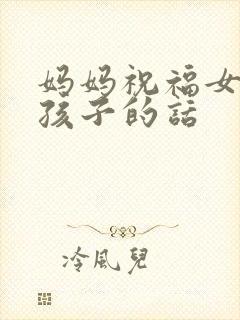 妈妈祝福女
孩子的話
冷風兒